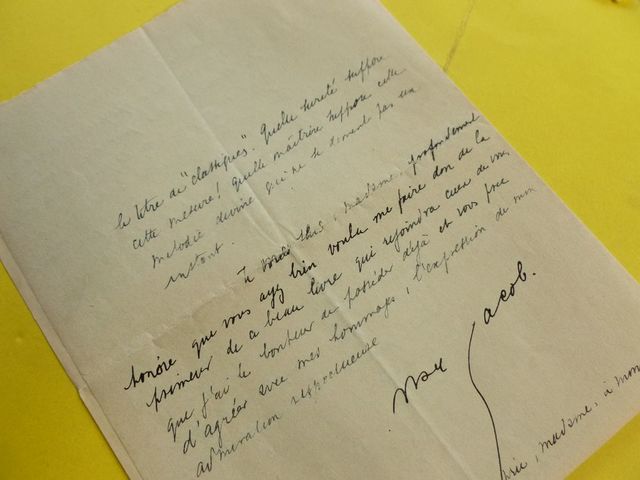 le titre de "classiques". Quelle sureté suppose
cette mesure! Quelle maîtrise suppose cette
melodie divine qui ne se dément pas un
instant.
Je suis, madame, profondement
honoré que vous ayez bien voulu me faire don de la
primeur de ce beau livre qui rejoindra ceux de vous
que j'ai le bonheur de posséder déjà et vous prie
d'agréer avec mes hommages, l'expression de mon
admiration respectueuse
Max Jacob.
prie, madame, à mon